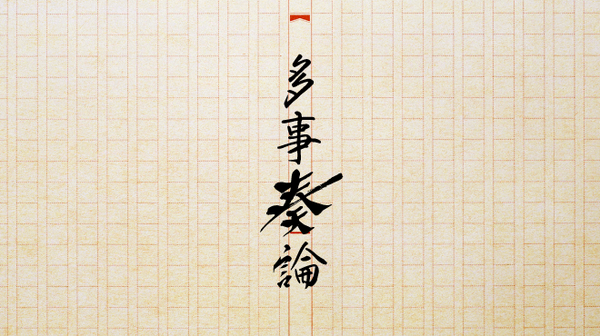 多事奏論